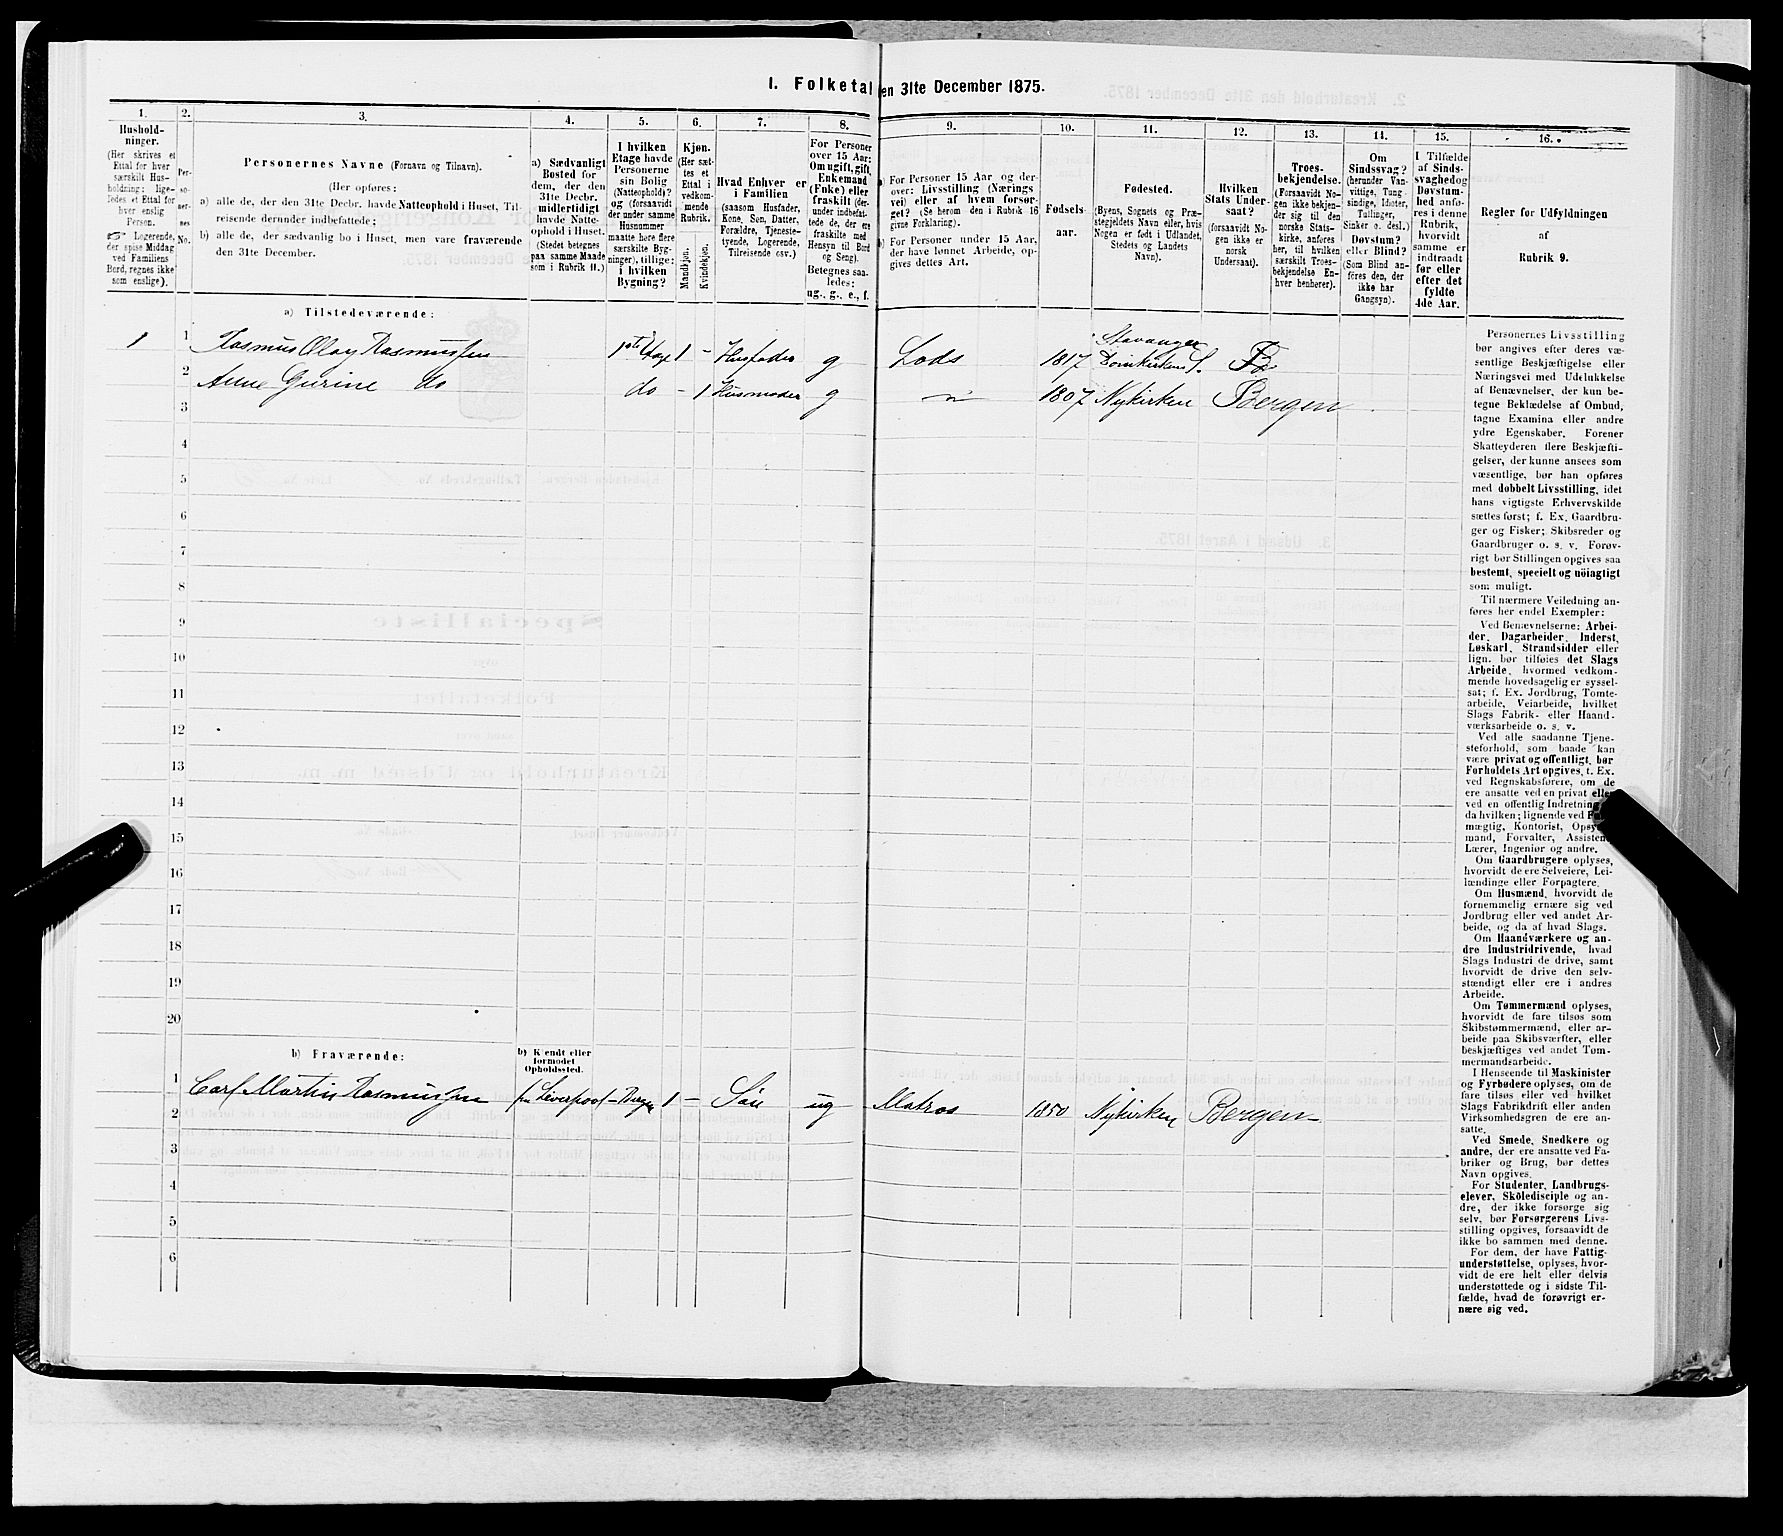 I. Folketal den 31te December 1875.
1.
Husholdninger.
(Her skrives et
Ettal for hver
særskilt Husholdning; ligeledes et Ettal for
hver enslig
Person.
☞ Logerende,
der spise Middag
ved Familiens
Bord, regnes ikke
som enslige).
2.
Personernes
No.
3.
Personernes Navne (Fornavn og Tilnavn).
(Her opføres:
a) alle de, der den 31te Decbr. havde Natteophold i Huset, Tilreisende derunder indbefattede;
b) alle de, der sædvanlig bo i Huset, men vare fraværende
den 31te December.
4.
a) Sædvanligt
Bosted for
dem, der den
31te Decbr.
midlertidigt
havde Natteophold i Huset.
(Stedet betegnes
paa samme Maade
som i Rubrik 11.)
5.
I hvilken
Etage havde
Personerne
sin Bolig
(Natteophold)?
og (forsaavidt
der under samme
Husnummer
maatte høre flere
særskilte Bygninger), tillige:
i hvilken
Bygning?
6.
Kjøn.
(Her sættes et
Ettal i
vedkommende
Rubrik.
Mandkjøn.
Kvindekjøn.
7.
Hvad Enhver er
i Familien
(saasom Husfader,
Kone, Søn, Datter,
Forældre, Tjenestetyende, Logerende,
Tilreisende osv.)
8.
For Personer
over 15 Aar:
Om ugift, gift,
Enkemand
(Enke) eller
fraskilt (derunder indbefattede de, der ere
fraskilte med
Hensyn til Bord
og Seng).
Betegnes saaledes:
ug., g., e., f.
9.
a) For Personer 15 Aar og derover: Livsstilling (Næringsvei) eller af hvem forsørget? (Se herom den i Rubrik 16
givne Forklaring).
b) For Personer under 15 Aar,
der have lønnet Arbeide, opgives dettes Art.
10.
Fødselsaar.
11.
Fødested.
(Byens, Sognets og Præstegjeldets Navn eller, hvis
Nogen er født i Udlandet,
Stedets og Landets
Navn).
12.
Hvilken
Stats Undersaat?
(forsaavidt Nogen ikke er
norsk
Undersaat).
13.
Troesbekjendelse.
(Forsaavidt Nogen ikke bekjender sig til den
norske Statskirke, anføres
her, til hvilken
særskilt Troesbekjendelse Enhver henhører).
14.
Om
Sindssvag?
(herunder Vanvittige, Tungsindige, Idioter,
Tullinger,
Sinker o. desl.)
Døvstum?
eller Blind?
(Som Blind anføres den, der
ikke har
Gangsyn).
15.
I Tilfælde
af Sindssvaghed og
Døvstumhed anføres i denne
Rubrik,
hvorvidt
samme er
indtraadt
før eller
efter det
fyldte
4de Aar.
16.
Regler for Udfyldningen
af
Rubrik 9.
a) Tilstedeværende:
1 1 Rasmus Olay Rasmussen 1ste Etage 1 - Husfader g Lods 1817 Stavanger Domkirkens S.
2 Anne Gurine do do - 1 Husmoder g 1807 Nykirken Bergen
3
4
5
6
7
8
9
10
11
12
13
14
15
16
17
18
19
20
b) Fraværende:
b) Kjendt eller
formodet
Opholdssted.
1 Carl Martin Rasmussen fra Liverpool - Bergen 1 - Søn ug Matros 1850 Nykirken Bergen
2
3
4
5
6
Personernes Livsstilling
bør angives efter deres væsentlige Beskjæftigelse eller
Næringsvei med Udelukkelse
af Benævnelser, der kun betegne Beklædelse af Ombud,
tagne Examina eller andre
ydre Egenskaber. Forener
Skatteyderen flere Beskjæftigelser, der kunne ansees som
væsentlige, bør han opføres
med dobbelt Livsstilling, idet
hans vigtigste Erhvervskilde
sættes først; f. Ex. Gaardbruger og Fisker; Skibsreder og
Gaardbruger o. s. v. Forøvrigt bør Stillingen opgives saa
bestemt, specielt og nöiagtigt
som muligt.
Til nærmere Veiledning anføres her endel Exempler:
Ved Benævnelserne: Arbeider, Dagarbeider, Inderst,
Løskarl, Strandsidder eller
lign. bør tilføies det Slags
Arbeide, hvormed vedkommende hovedsagelig er sysselsat; f. Ex. Jordbrug, Tomtearbeide, Veiarbeide, hvilket
Slags Fabrik- eller Haandværksarbeide o. s. v.
Ved alle saadanne Tjenesteforhold, som baade kan
være privat og offentligt, bør
Forholdets Art opgives, t. Ex.
ved Regnskabsførere, om de
ere ansatte ved en privat eller
ved en offentlig Indretning
da hvilken; lignende ved
mægtig, Kontorist,
mand, Forvalter,
Lærer, Ingeniør og andre.
Om Gaardbrugere oplyses,
hvorvidt de ere Selveiere, Leilændinge eller Forpagtere.
Om Husmænd, hvorvidt de
fornemmelig ernære sig ved
Jordbrug eller ved andet Arbeide, og da af hvad Slags.
Om Haandværkere og andre Industridrivende, hvad
Slags Industri de drive, samt
hvorvidt de drive den selvstændigt eller ere i andres
Arbeide.
Om Tømmermænd oplyses,
hvorvidt de fare tilsøs som
Skibstømmermænd, eller arbeide paa Skibsværfter, eller
beskjæftiges ved andet Tømmermandsarbeide.
I Henseende til Maskinister
og Fyrbødere oplyses, om de
fare tilsøs eller ved hvilket
Slags Fabrikdrift eller anden
Virksomhedsgren de ere ansatte.
Ved Smede, Snedkere og
andre, der ere ansatte ved Fabriker og Brug, bør dettes
Navn opgives.
For Studenter, Landbrugselever, Skôledisciple og andre, der ikke forsørge sig
selv, bør Forsørgerens Livsstilling opgives, forsaavidt de
ikke bo sammen med denne.
For dem, der have Fattigunderstøttelse, oplyses, hvorvidt de ere helt eller delvis
understøttede og i sidste Tilfælde, hvad de forøvrigt ernære sig ved.